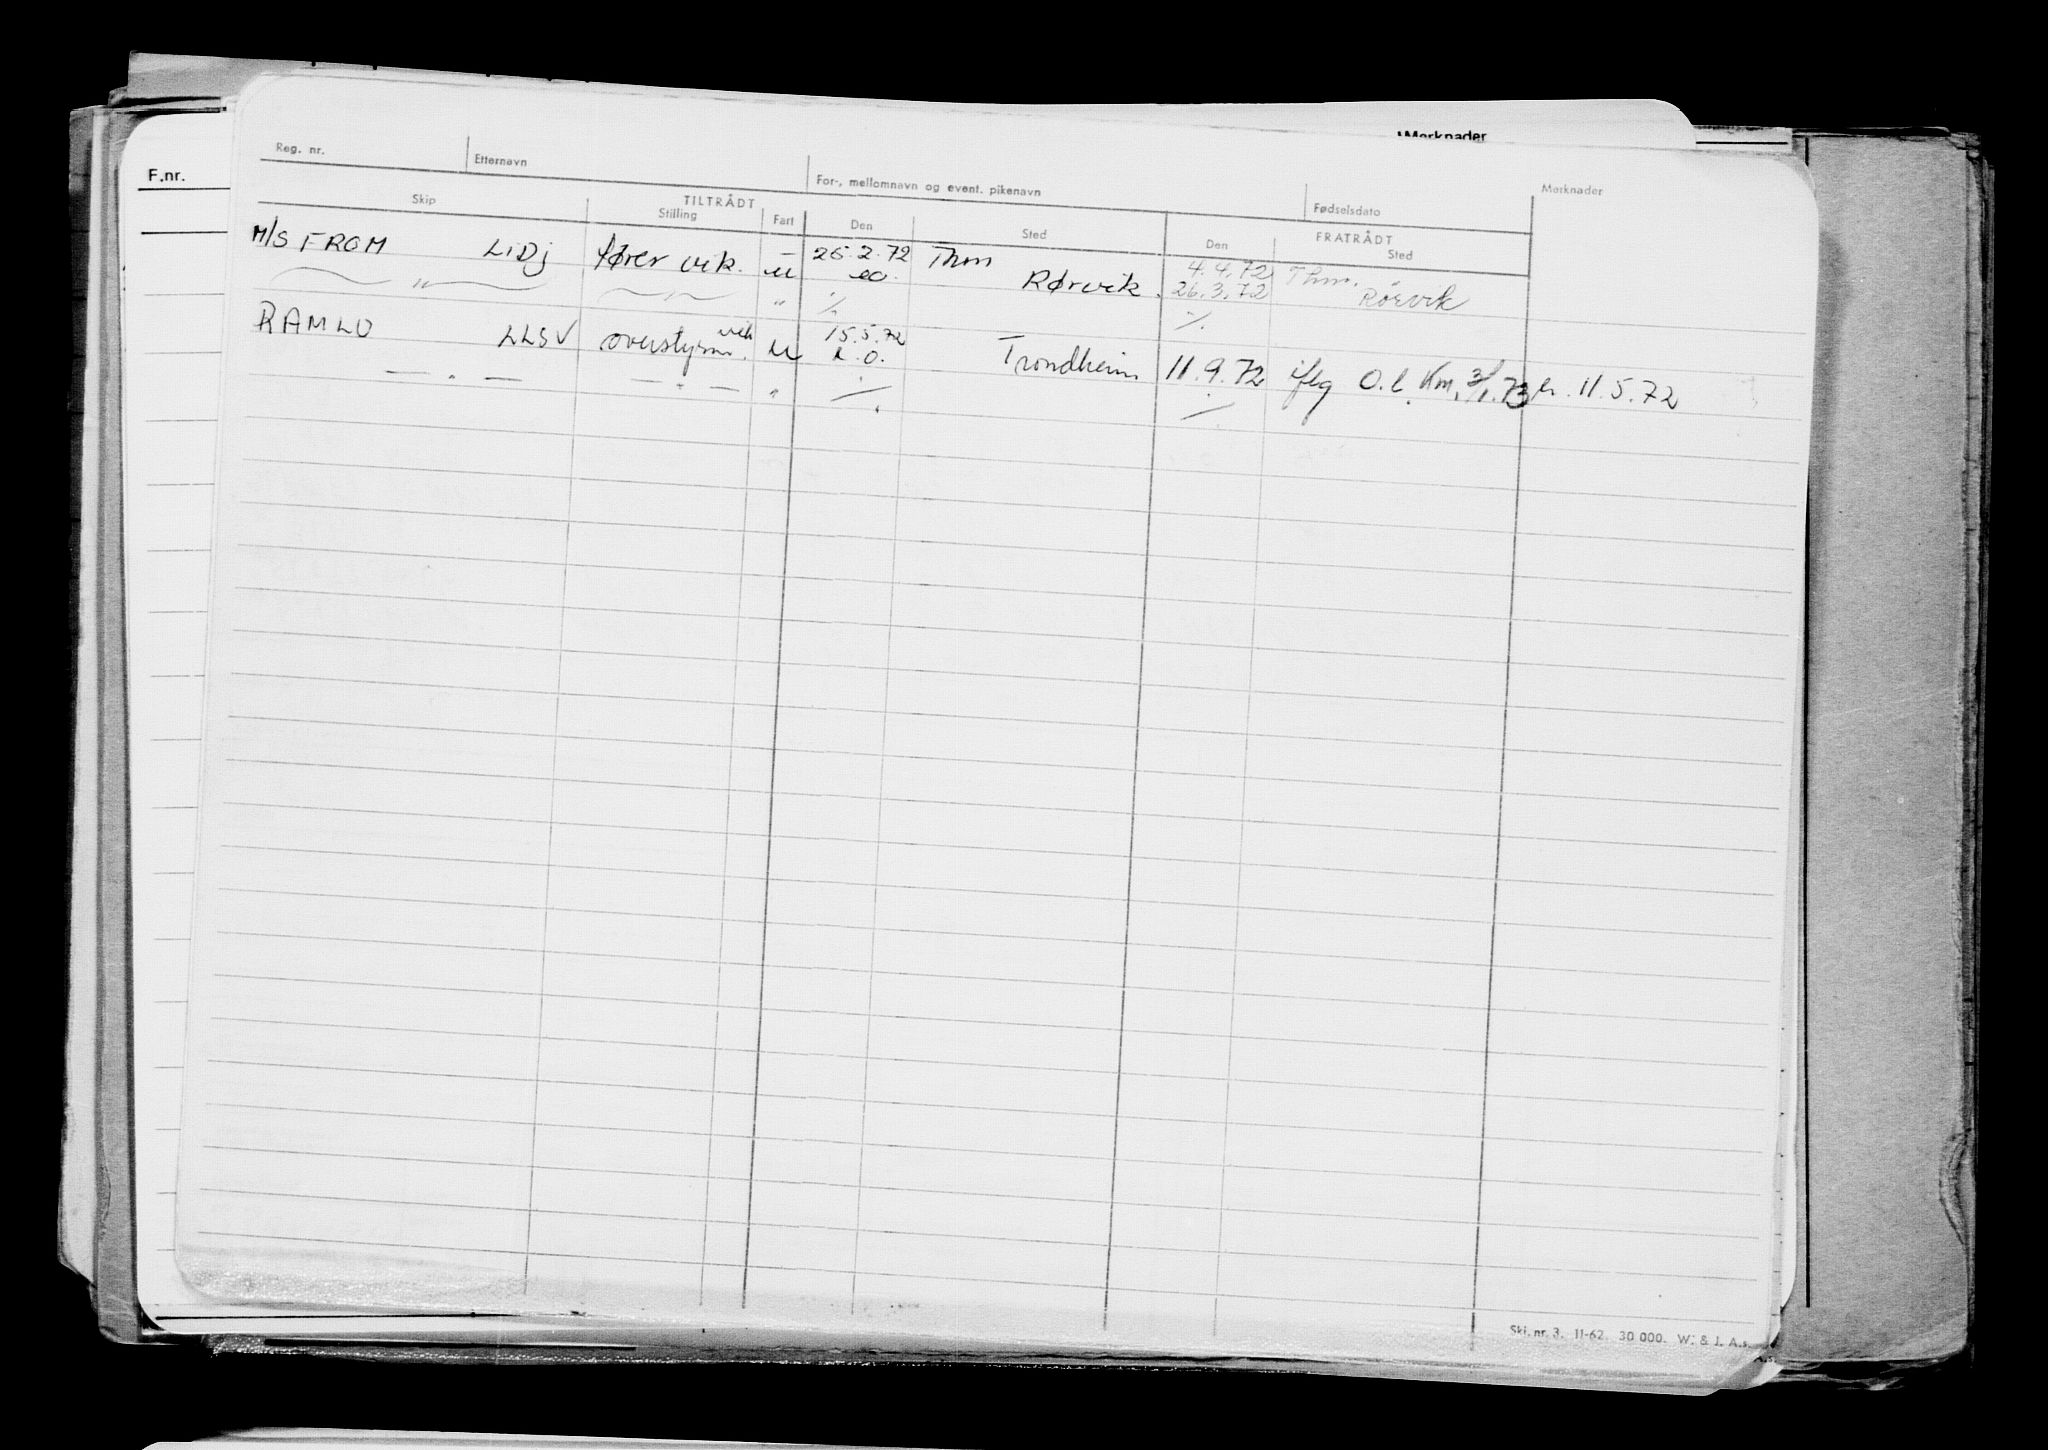 Merknader
F.nr.
Reg. nr. Etternavn For-, mellomnavn og event. pikenavn Fødselsdato Merknader
TILTRÅDT FRATRÅDT
Skip Stilling Fart Den Sted Den Sted
M/S FROM LIDj fører vik. u 26.2.72 Thm 4.4.72 Thm.
" " " eo. Rørvik. 26.3.72 Rørvik
RAMLO LLSV overstyrm. vik u 15.5.72
— " — — " — " u.o. Trondheim 11.9.72 iflg O.l. Km. 3/1.73 h. 11.5.72
Skj. nr. 3. 11-62. 30 000. W. & J. A.s.
A.s.